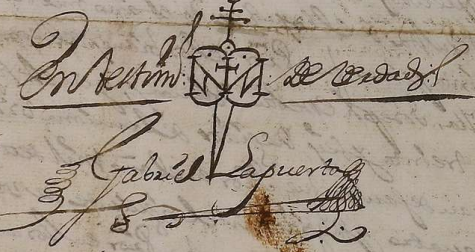 En testim.º de verdad
Gabriel Lapuerta